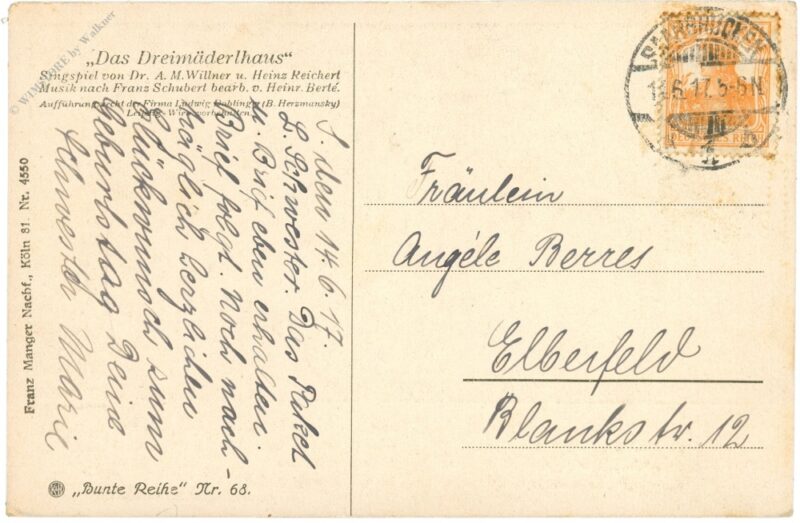 © WINDMORE by Walkner
„Das Dreimäderlhaus“
Singspiel von Dr. A. M. Willner u. Heinz Reichert
Musik nach Franz Schubert bearb. v. Heinr. Berté.
Aufführungsrecht der Firma Ludwig Doblinger (B. Herzmansky)
Leipzig-Wien vorbehalten
S. den 14.6.17.
L. Schwester. Das Paket
u. Brief eben erhalten.
Brief folgt. Noch nach-
träglich herzlichen
Glückwunsch zum
Geburtstag Deine
Schwester Marie
Franz Manger Nachf., Köln 81. Nr. 4550
„Bunte Reihe“ Nr. 68.
SAARBRÜCKEN
6.17. 5-6N
1
DEUTSCHES REICH
Fräulein
Angéle Berres
Elberfeld
Blankstr. 12